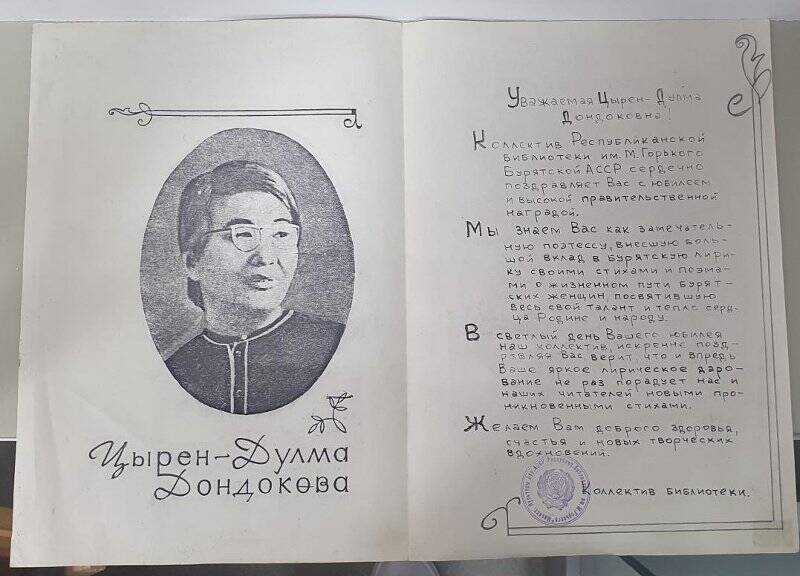 Цырен-Дулма
Дондокова
Уважаемая Цырен-Дулма
Дондоковна!
Коллектив Республиканской
библиотеки им. М. Горького
Бурятской АССР сердечно
поздравляет Вас с юбилеем
и высокой правительственной
наградой.
Мы знаем Вас как замечатель-
ную поэтессу, внесшую боль-
шой вклад в бурятскую лири-
ку своими стихами и поэма-
ми о жизненном пути бурят-
ских женщин, посвятившую
весь свой талант и тепло серд-
ца Родине и народу.
В светлый день Вашего юбилея
наш коллектив, искренне позд-
равляя Вас, верит, что и впредь
Ваше яркое лирическое даро-
вание не раз порадует нас и
наших читателей новыми про-
никновенными стихами.
Желаем Вам доброго здоровья,
счастья и новых творческих
вдохновений.
Коллектив библиотеки.